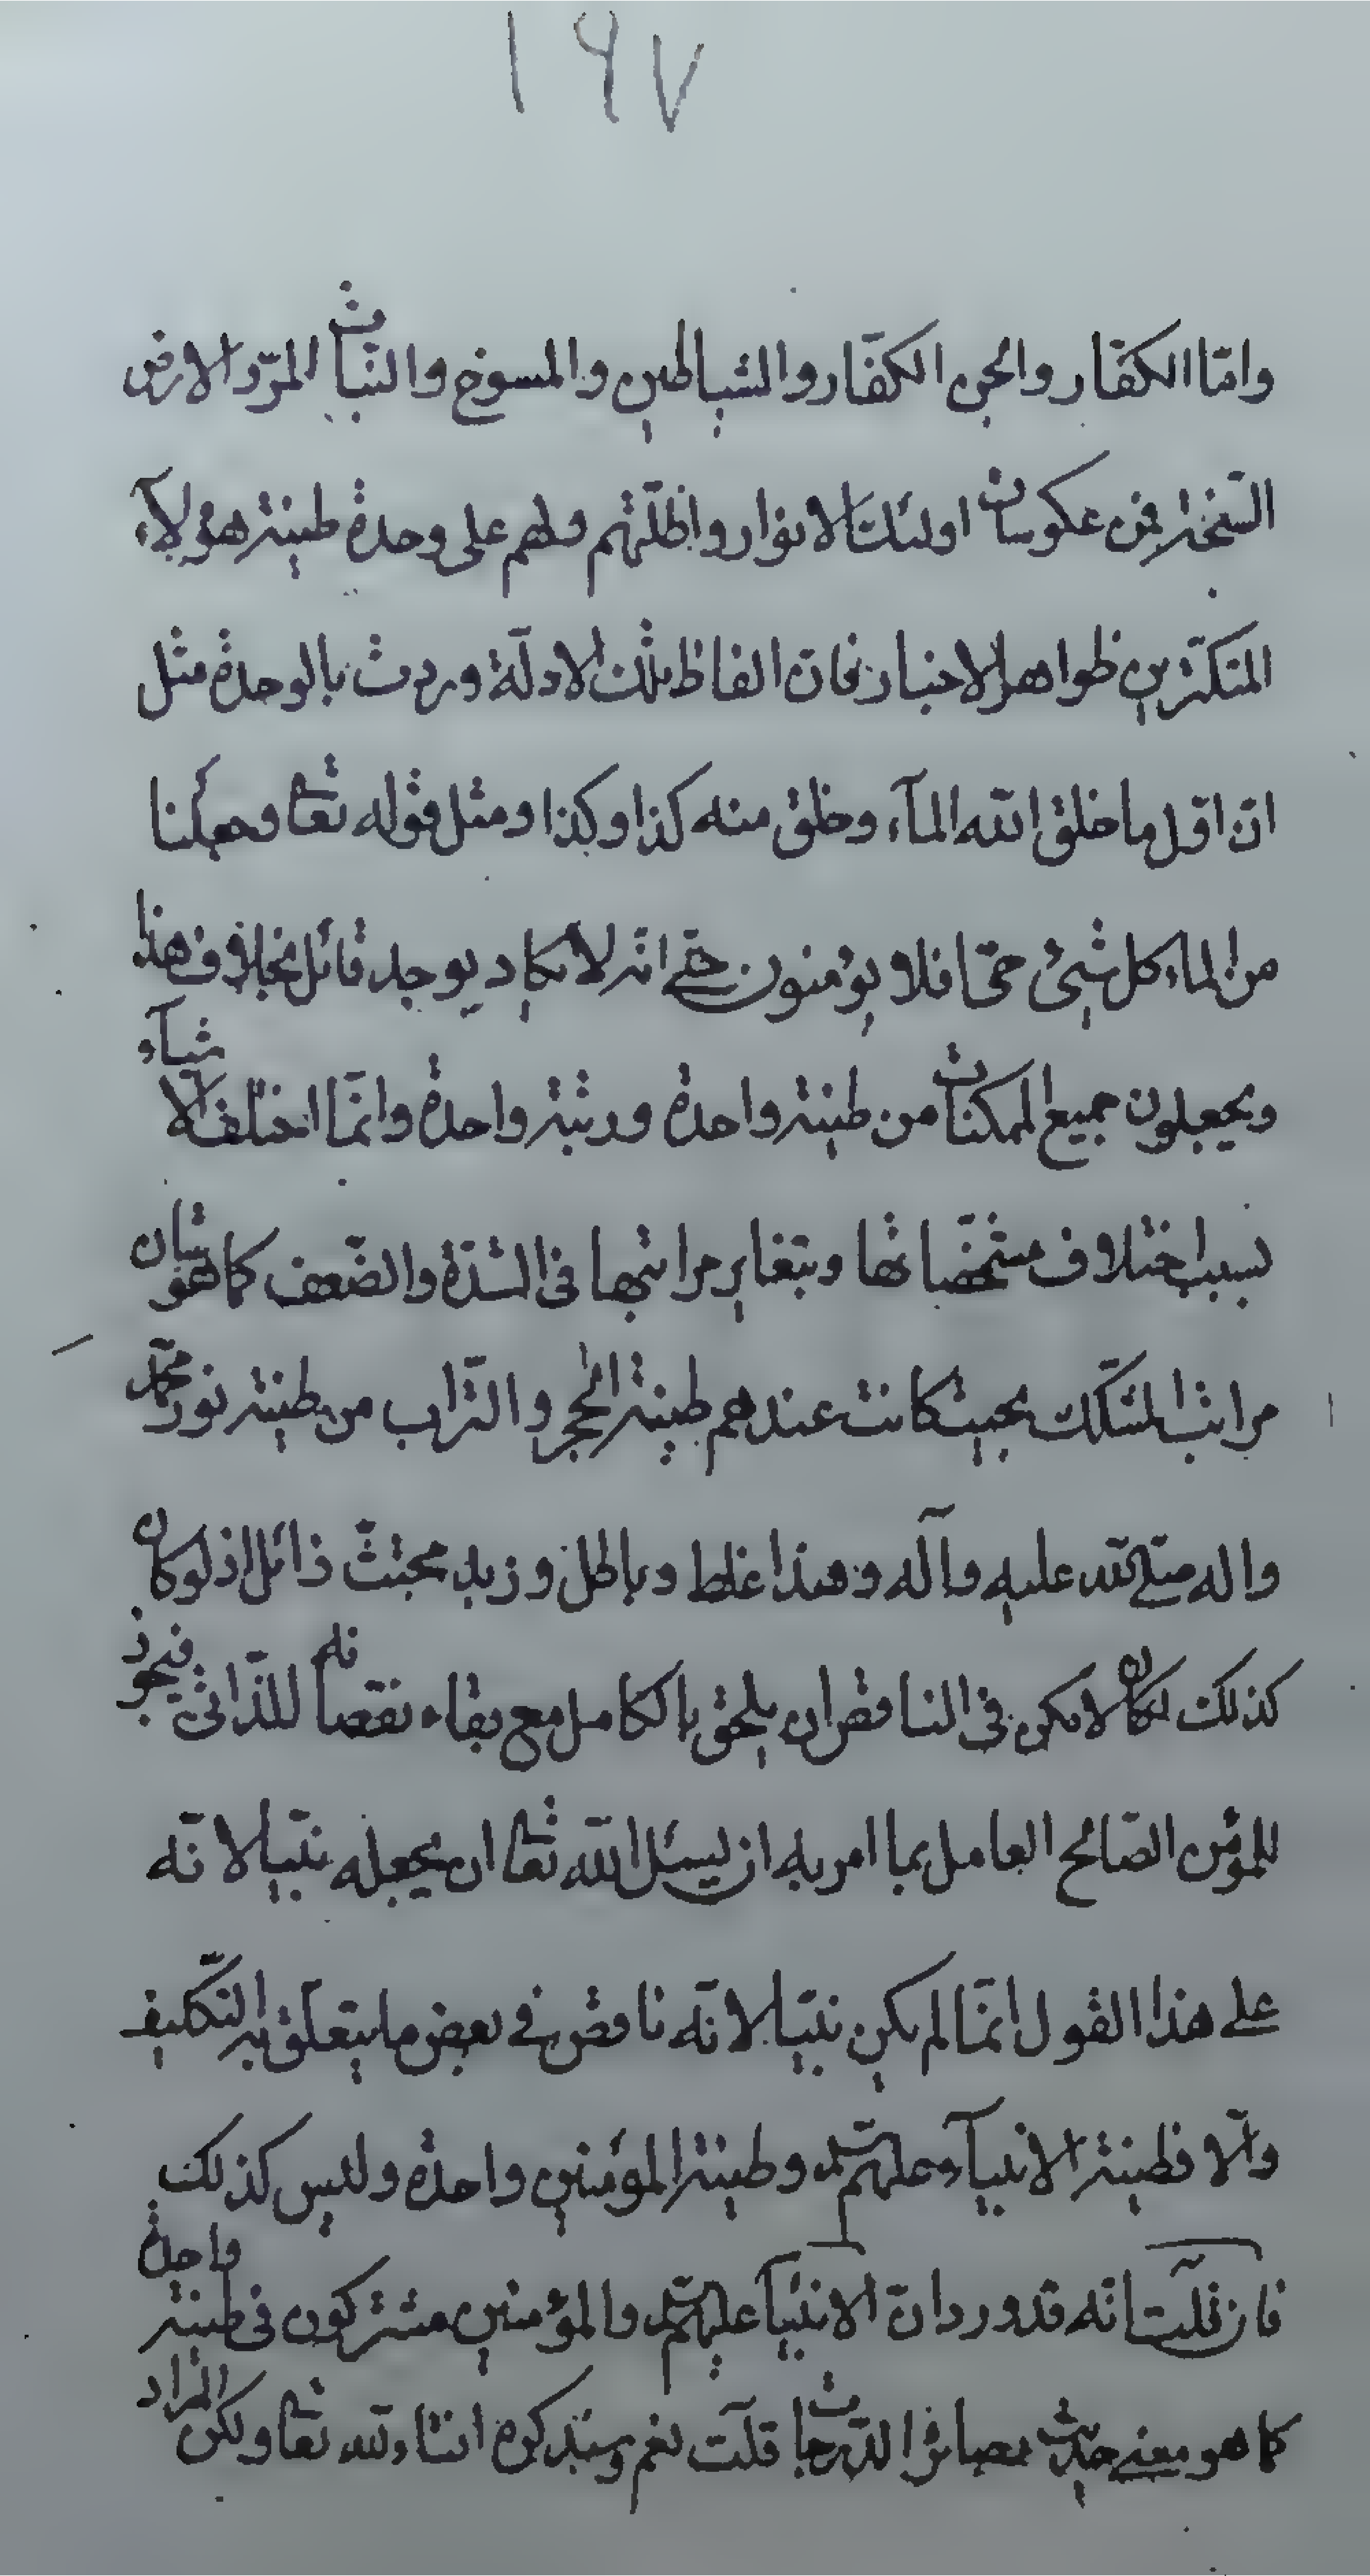 ١٩٧
وامّا الكفّار والجن الكفّار والشياطين والمسوخ والنبات المرّ والارض
السّبخة فمن عكوسات اولئك الانوار واظلّتهم ولهم على وحدة طينة هؤلآء
المتكثّرين ظواهر الاخبار فان الفاظ تلك الادلّة وردت بالوحدة مثل
انّ اوّل ما خلق الله المآء وخلق منه كذا وكذا ومثل قوله تعا وجعلنا
من الماء كل شيئ حيّ افلا يؤمنون حتّى انّه لا يكاد يوجد قائل بخلاف هذا
ويجعلون جميع الممكنات من طينة واحدة ورتبة واحدة وانّما اختلف الاشيآء
بسبب اختلاف مشخّصاتها وبتغاير مراتبها في الشدّة والضّعف كما هو شان
مراتب المشكّك بحيث كانت عندهم طينة الحجر والتّراب من طينة نور محمّد
واله صلّى الله عليه وآله وهذا غلط وباطل وزبد مجتثّ زائل اذ لو كان
كذلك لكان لامكن في الناقص ان يلحق بالكامل مع بقاء نقصانه للذّاتي فيجوز
للمؤمن الصّالح العامل بما امر به ان يسئل الله تعا ان يجعله نبيّا لانّه
على هذا القول انمّا لم يكن نبيّا لانّه ناقص في بعض ما يتعلّق به التكليف
والّا فطينة الانبيآء عليهم السّلم وطينة المؤمنين واحدة وليس كذلك
فان قلت انّه قد ورد انّ الانبيآ عليهم السّلم والمؤمنين مشتركون في طينة واحدة
كما هو معنى حديث بصائر الدّرجات قلت نعم وسنذكره انشاء الله تعا ولكن المراد